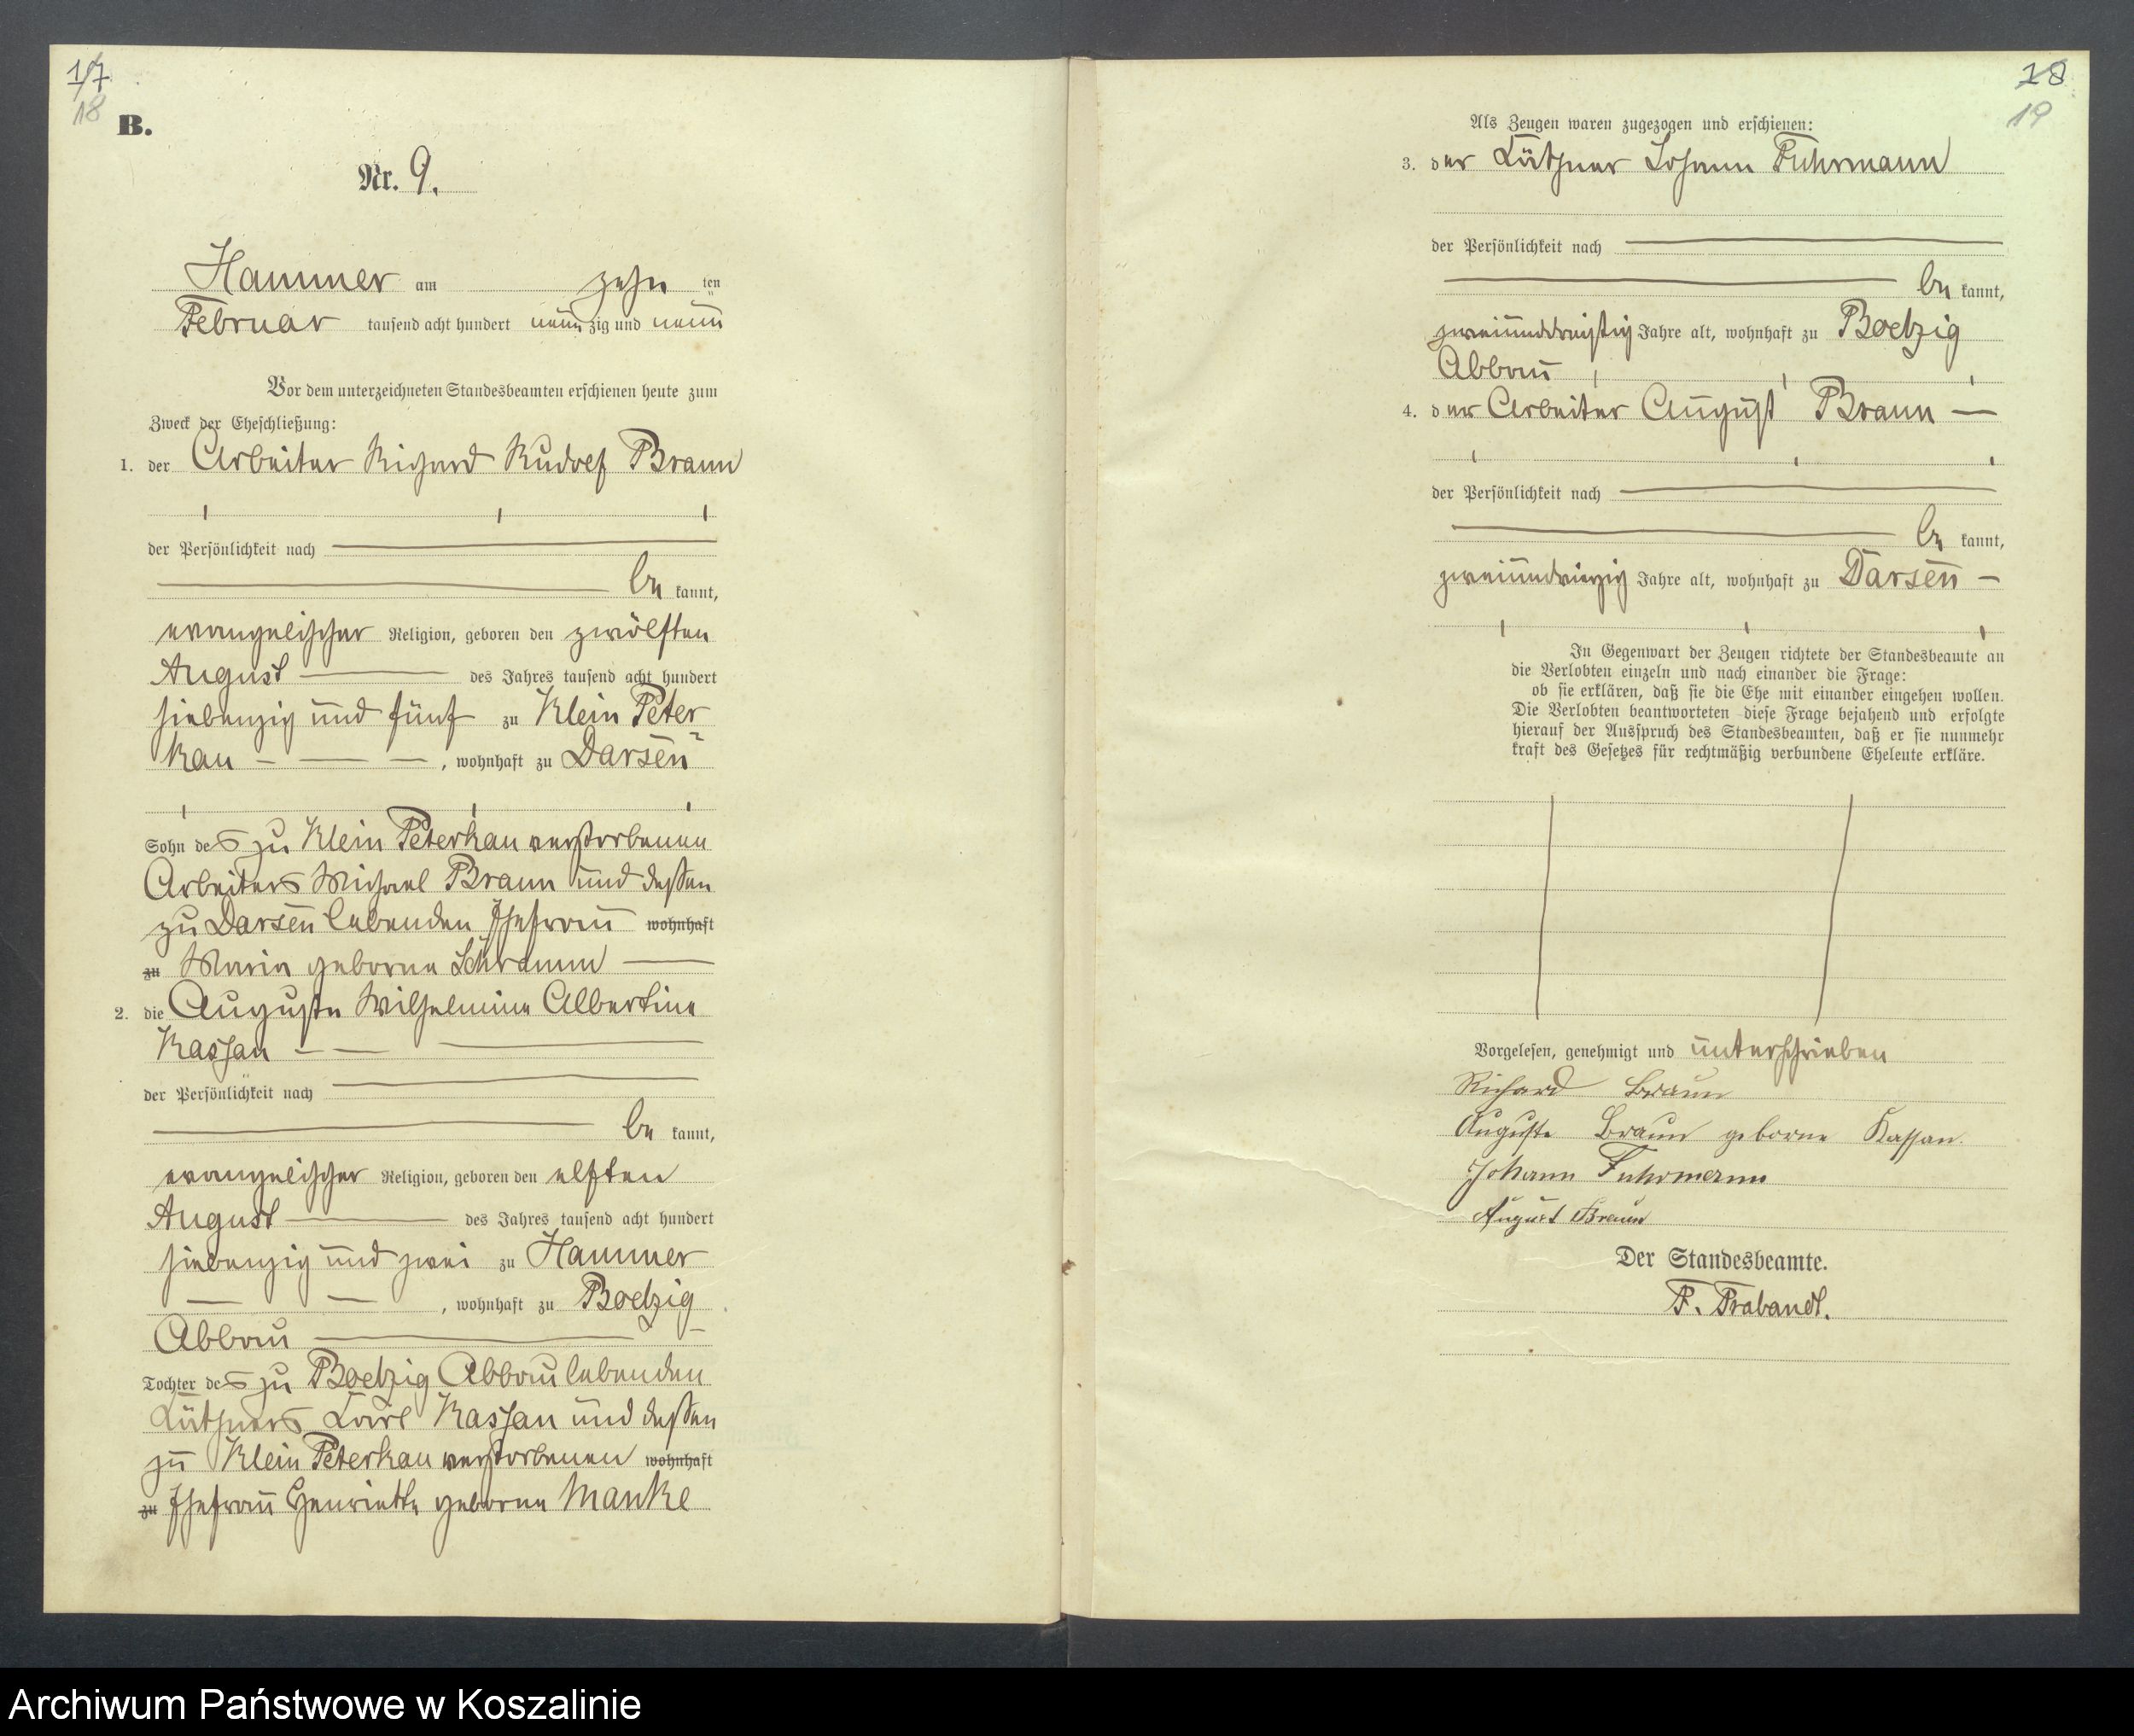 17
18
B.
Nr. 9.
Hammer am zehn ten
Februar tausend acht hundert neun zig und neun
Vor dem unterzeichneten Standesbeamten erschienen heute zum
Zweck der Eheschließung:
1. der Arbeiter Richard Rudolf Braun
der Persönlichkeit nach
be kannt,
evangelischer Religion, geboren den zwölften
August des Jahres tausend acht hundert
siebenzig und fünf zu Klein Peter
kau , wohnhaft zu Darsen
Sohn des zu Klein Peterkau verstorbenen
Arbeiters Michael Braun und dessen
zu Darsen lebenden Ehefrau wohnhaft
zu Maria geborne Schramm
2. die Auguste Wilhelmine Albertine
Kassan
der Persönlichkeit nach
be kannt,
evangelischer Religion, geboren den elften
August des Jahres tausend acht hundert
siebenzig und zwei zu Hammer
, wohnhaft zu Boetzig
Abbau
Tochter des zu Boetzig Abbau lebenden
Käthners Karl Kassan und dessen
zu Klein Peterkau verstorbenen wohnhaft
zu Ehefrau Henriette geborne Manke
18
19
Als Zeugen waren zugezogen und erschienen:
3. der Käthner Johann Fuhrmann
der Persönlichkeit nach
be kannt,
zweiunddreißig Jahre alt, wohnhaft zu Boetzig
Abbau
4. der Arbeiter August Braun
der Persönlichkeit nach
be kannt,
zweiundvierzig Jahre alt, wohnhaft zu Darsen
In Gegenwart der Zeugen richtete der Standesbeamte an
die Verlobten einzeln und nach einander die Frage:
ob sie erklären, daß sie die Ehe mit einander eingehen wollen.
Die Verlobten beantworteten diese Frage bejahend und erfolgte
hierauf der Ausspruch des Standesbeamten, daß er sie nunmehr
kraft des Gesetzes für rechtmäßig verbundene Eheleute erkläre.
Vorgelesen, genehmigt und unterschrieben
Richard Braun
Auguste Braun geborne Kassan.
Johann Fuhrmann
August Braun
Der Standesbeamte.
F. Prabandt.
Archiwum Państwowe w Koszalinie